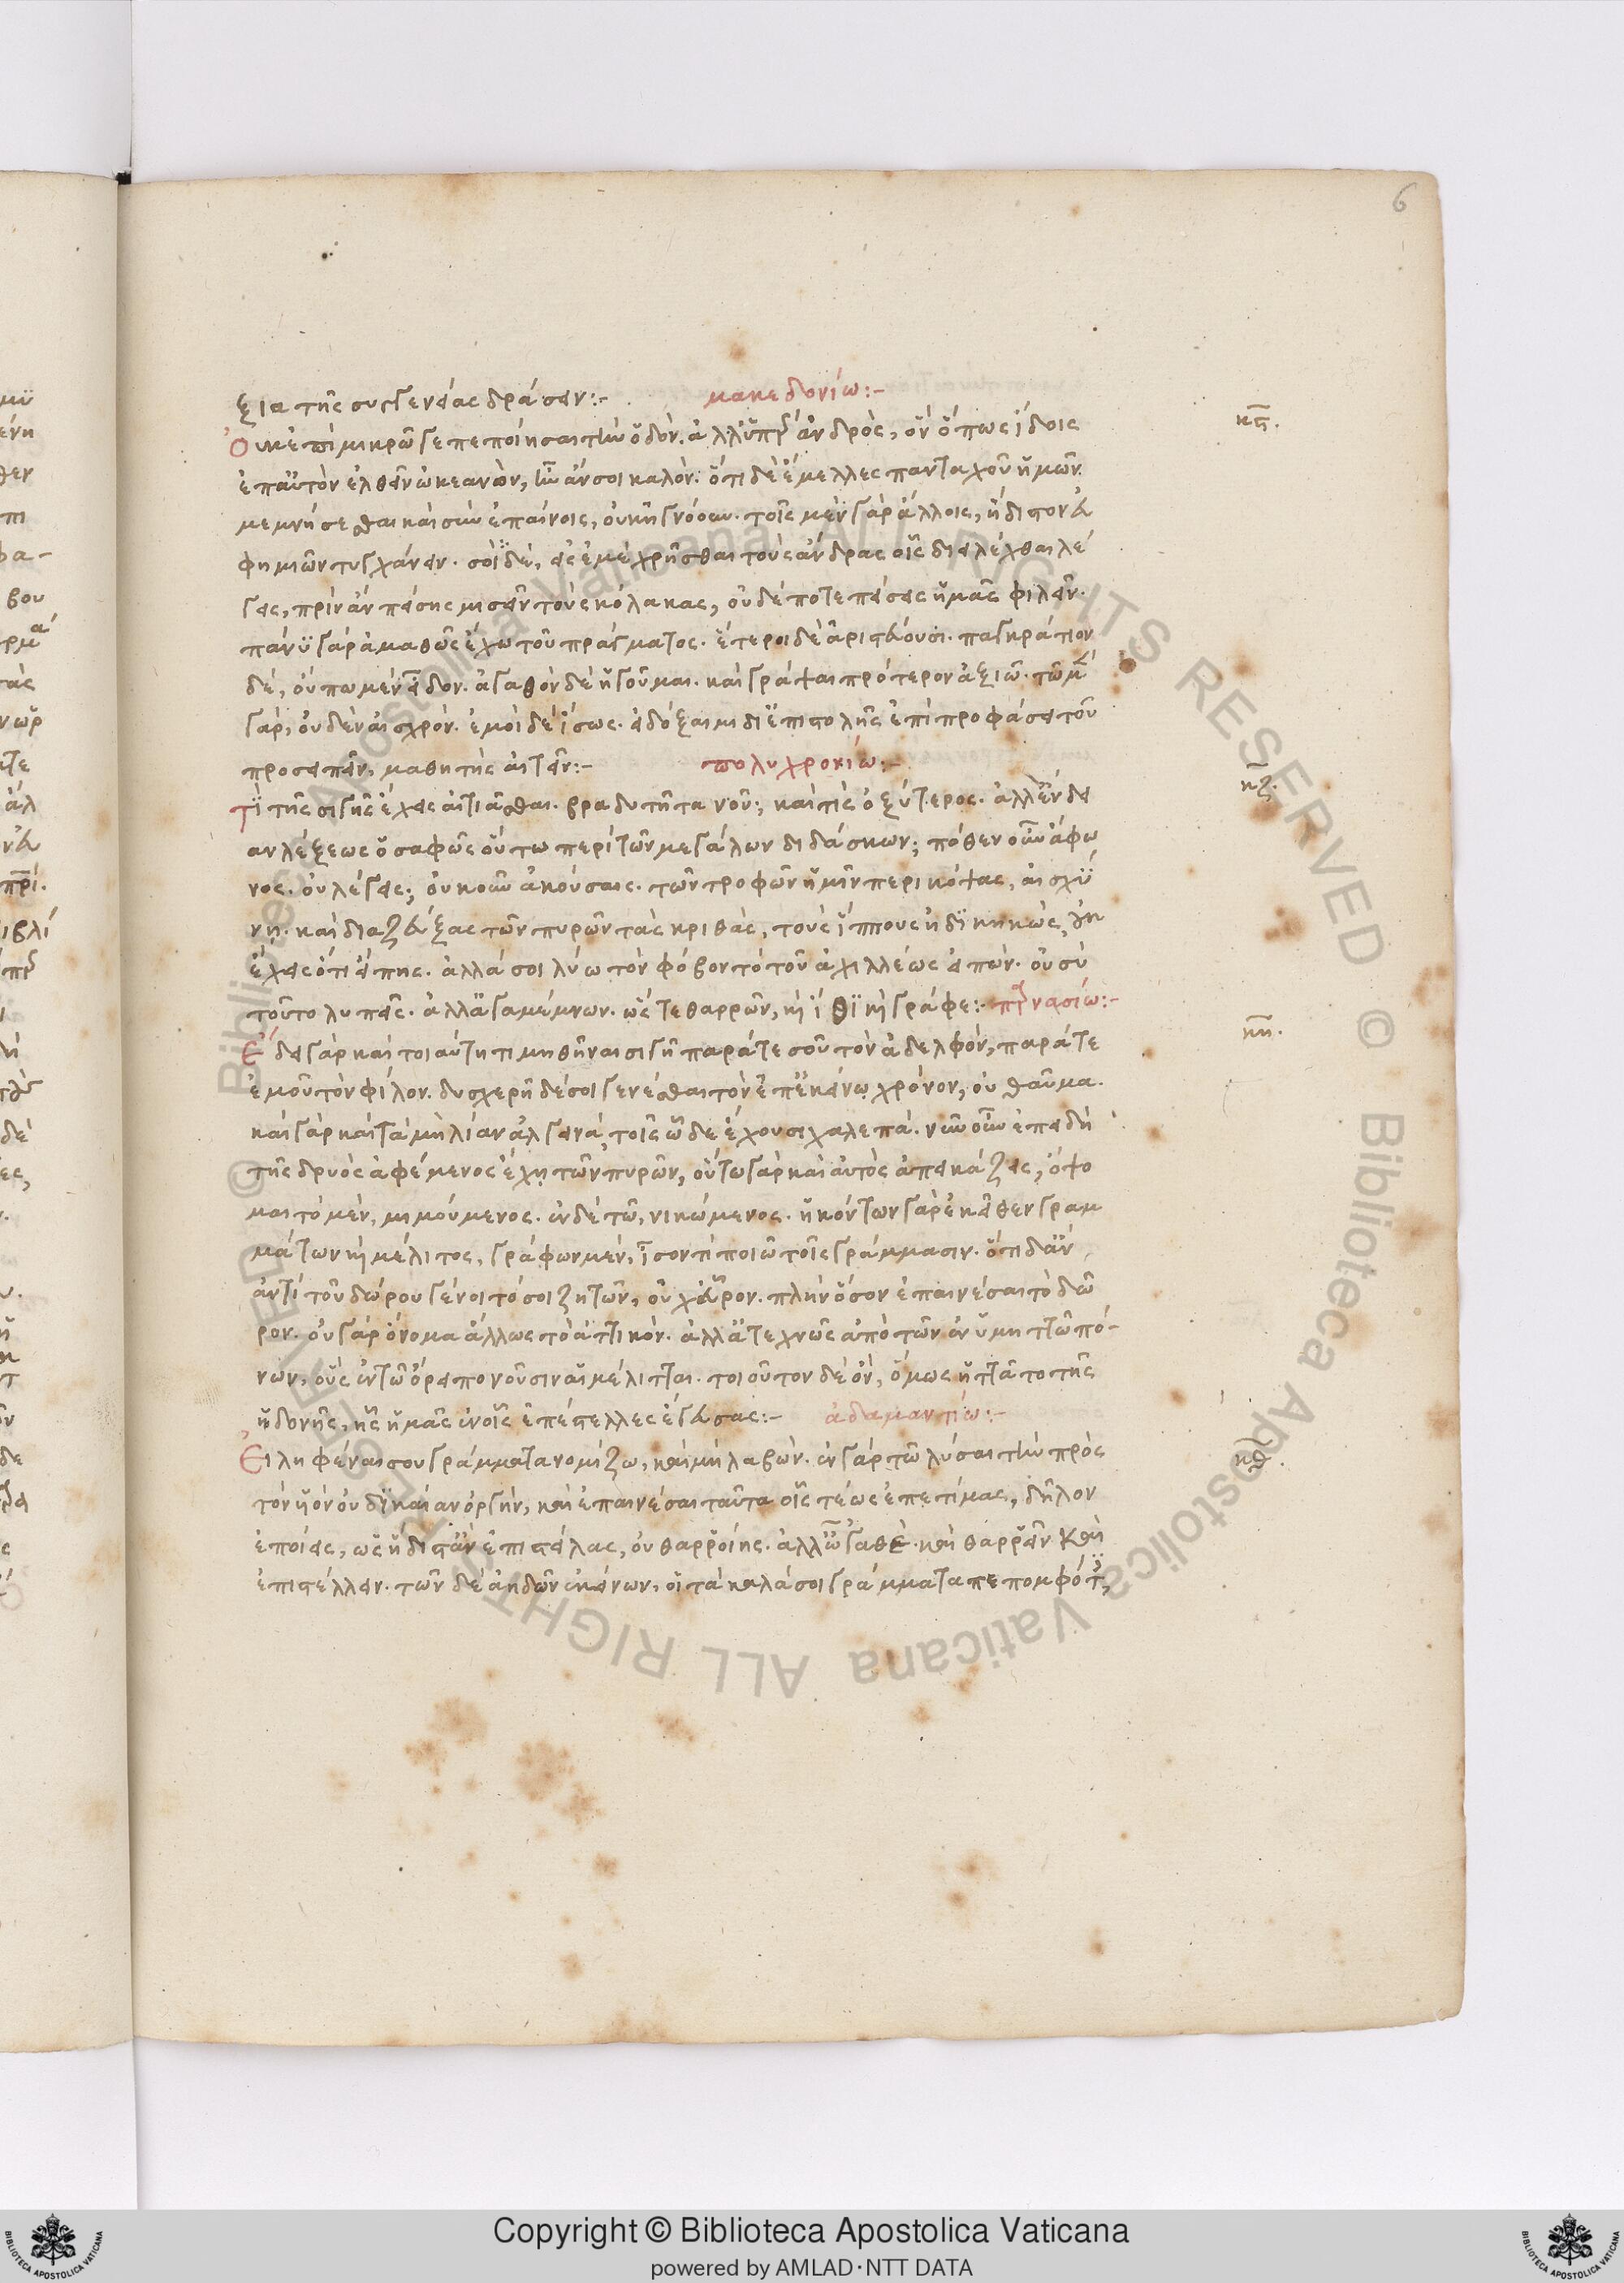 6
ξια τῆς συγγενείας δράσειν:- μακεδονίω:-
κϛ.
Οὐκ ἐπὶ μικρῶ γε πεποίησαι τὴν ὁδὸν. ἀλλ' ὑπὲρ ἀνδρὸς, ὃν ὅπως ἴδοις
ἐπ' αὐτὸν ἐλθεῖν ὠκεανὸν, ἦν ἄν σοι καλὸν. ὅτι δὲ ἔμελλες πανταχοῦ ἡμῶν
μεμνήσεσθαι καὶ σὺν ἐπαίνοις, οὐκ ἠγνόουν. τοῖς μὲν γὰρ ἄλλοις, ἥδιστον εὐ
φημιῶν τυγχάνειν. σοὶ δὲ, εἰς ἐμὲ χρῆσθαι τοὺς ἄνδρας οἷς διειλέχθαι λέ
γεις, πρὶν ἂν πείσῃς μισεῖν τοὺς κόλακας, οὐδέποτε πείσεις ἡμᾶς φιλεῖν.
πάνυ γὰρ ἀμαθῶς ἔχω τοῦ πράγματος. ἕτεροι δὲ ἀριστεύουσι. παγκράτιον
δὲ, οὔπω μὲν εἶδον. ἀγαθὸν δὲ ἡγοῦμαι. καὶ γράψαι πρότερον ἀξιῶ. τῶ μ
γὰρ, οὐδὲν αἰσχρὸν. ἐμοὶ δὲ ἴσως. εἰ δόξαιμι δι' ἐπιστολῆς ἐπὶ προφάσει τοῦ
προσειπεῖν, μαθητὴς αἰτεῖν:- πολυχρονίω:-
κζ.
Τί τῆς σιγῆς ἔχεις αἰτιᾶσθαι. βραδυτῆτα νοῦ; καὶ τίς ὀξύτερος. ἀλλ' ἔνδει
αν λέξεως ὁ σαφῶς οὕτω περὶ τῶν μεγάλων διδάσκων; πόθεν οὖν ἄφω
νος. οὐ λέγεις; οὐκοῦν ἀκούσαις. τῶν τροφῶν ἡμῖν περικόψας, αἰσχύ
νῃ. καὶ διαζεύξας τῶν πυρῶν τὰς κριθὰς, τοὺς ἵππους ἠδικηκὼς,
ἔχεις ὅτι εἴπῃς. ἀλλά σοι λύω τὸν φόβον τὸ τοῦ ἀχιλλέως εἰπὼν. οὐ σὺ
τοῦτο λυπεῖς. ἀλλ' ἀγαμέμνων. ὥστε θαρρῶν, κὴ ἴθι κὴ γράφε:-
κη.
Ἔδει γὰρ καὶ τοιαύτη τιμηθῆναι σιγῆ παρά τε σοῦ τὸν ἀδελφὸν, παρά τε
ἐμοῦ τὸν φίλον. δυσχερῆ δέ σοι γενέσθαι τὸν ἐπ' ἐκείνω χρόνον, οὐ θαῦμα.
καὶ γὰρ καὶ τὰ μὴ λίαν ἀλγεινά, τοῖς ὧδε ἔχουσι χαλεπά. νῦν οὖν ἐπειδὴ
τῆς δρυὸς ἀφέμενος ἔχῃ τῶν πυρῶν, οὕτω γὰρ καὶ αὐτὸς ἀπεικάζεις, ὄψο
μαι τὸ μὲν, μιμούμενος. ἐν δὲ τῶ, νικώμενος. ἡκόντων γὰρ ἐκεῖθεν γραμ
μάτων κὴ μέλιτος, γράφω μὲν, ἴσον τί ποιῶ τοῖς γράμμασιν. ὅτι δ' ἂν
ἀντὶ τοῦ δώρου γένοιτό σοι ζητῶν, οὐχ εὗρον. πλὴν ὅσον ἐπαινέσαι τὸ δῶ
ρον. οὐ γὰρ ὄνομα ἄλλως τὸ ἀττικὸν. ἀλλ' ἀτεχνῶς ἀπὸ τῶν ἐν ὑμηττῶ πό-
νων, οὓς ἐν τῶ ὄρει πονοῦσιν αἱ μέλιτται. τοιοῦτον δὲ ὂν, ὅμως ἡττᾶτο τῆς
ἡδονῆς, ἧς ἡμᾶς ἐν οἷς ἐπέστελλες ἔγευσας:- ἀδαμαντίω:-
κθ.
Εἰληφέναι σου γράμματα νομίζω, καὶ μὴ λαβὼν. ἐν γὰρ τῶ λῦσαι τὴν πρὸς
τὸν υἱὸν οὐ δικαίαν ὀργὴν, καὶ ἐπαινέσαι ταῦτα οἷς τέως ἐπετίμας, δῆλον
ἐποίεις, ὡς ἥδιστ' ἂν ἐπιστείλας, οὐ θαρροίης. ἀλλ' ὦγαθὲ. καὶ θαρρεῖν καὶ
ἐπιστέλλειν. τῶν δὲ ἀηδῶν ἐκείνων, οἳ τὰ καλά σοι γράμματα πεπομφότ,